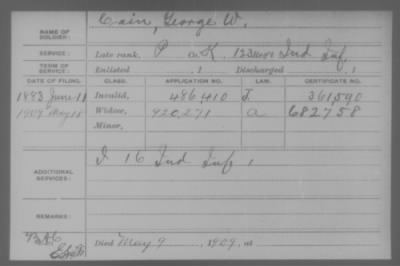 NAME OF SOLDIER: Cain, George W.
SERVICE: Late rank, P Co. K, 123 Ind Inf.
TERM OF SERVICE: Enlisted , 1 Discharged , 1
DATE OF FILING. CLASS. APPLICATION NO. LAW. CERTIFICATE NO.
1883 June 11 Invalid, 486,410 J. 361,590
1909 May 18 Widow, 920,271 a 682758
Minor,
ADDITIONAL SERVICES: I 16 Ind Inf,
REMARKS:
Died May 9, 1909, at